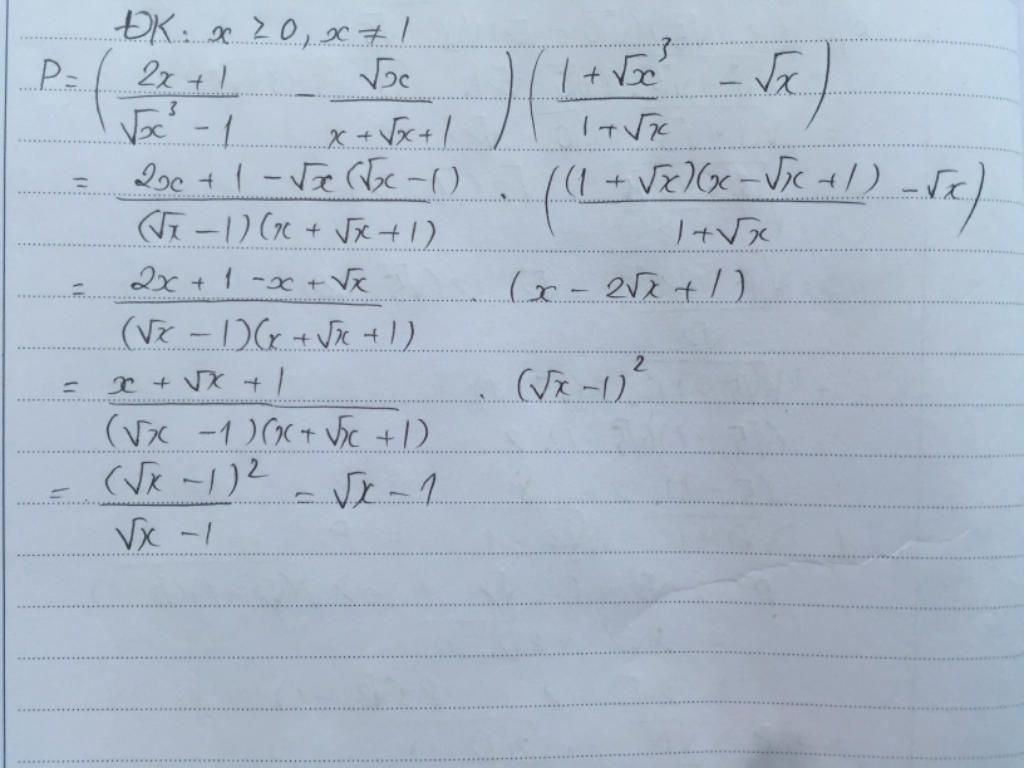 ĐK: x ≥ 0, x ≠ 1
P = ( (2x + 1)/(√x³ - 1) - √x/(x + √x + 1) ) ( (1 + √x³)/(1 + √x) - √x )
= (2x + 1 - √x(√x - 1))/((√x - 1)(x + √x + 1)) . ( ((1 + √x)(x - √x + 1))/(1 + √x) - √x )
= (2x + 1 - x + √x)/((√x - 1)(x + √x + 1)) . (x - 2√x + 1)
= (x + √x + 1)/((√x - 1)(x + √x + 1)) . (√x - 1)²
= (√x - 1)²/(√x - 1) = √x - 1